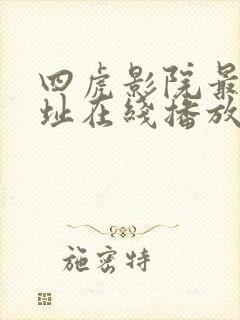 四虎影院最
址在线播放
施密特